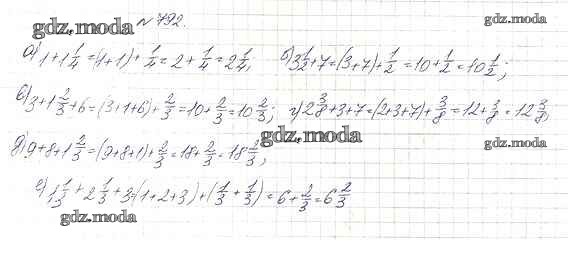 № 792.
gdz.moda
gdz.moda
а) 1+1 1/4 =(1+1)+ 1/4 =2+ 1/4 =2 1/4; б) 3 1/2 +7=(3+7)+ 1/2 =10+ 1/2 =10 1/2;
в) 3+1 2/3 +6=(3+1+6)+ 2/3 =10+ 2/3 =10 2/3; г) 2 3/8 +3+7=(2+3+7)+ 3/8 =12+ 3/8 =12 3/8;
gdz.moda
gdz.moda
д) 9+8+1 2/3 =(9+8+1)+ 2/3 =18+ 2/3 =18 2/3;
е) 1 1/3 +2 1/3 +3=(1+2+3)+( 1/3 + 1/3 )=6+ 2/3 =6 2/3
gdz.moda
gdz.moda